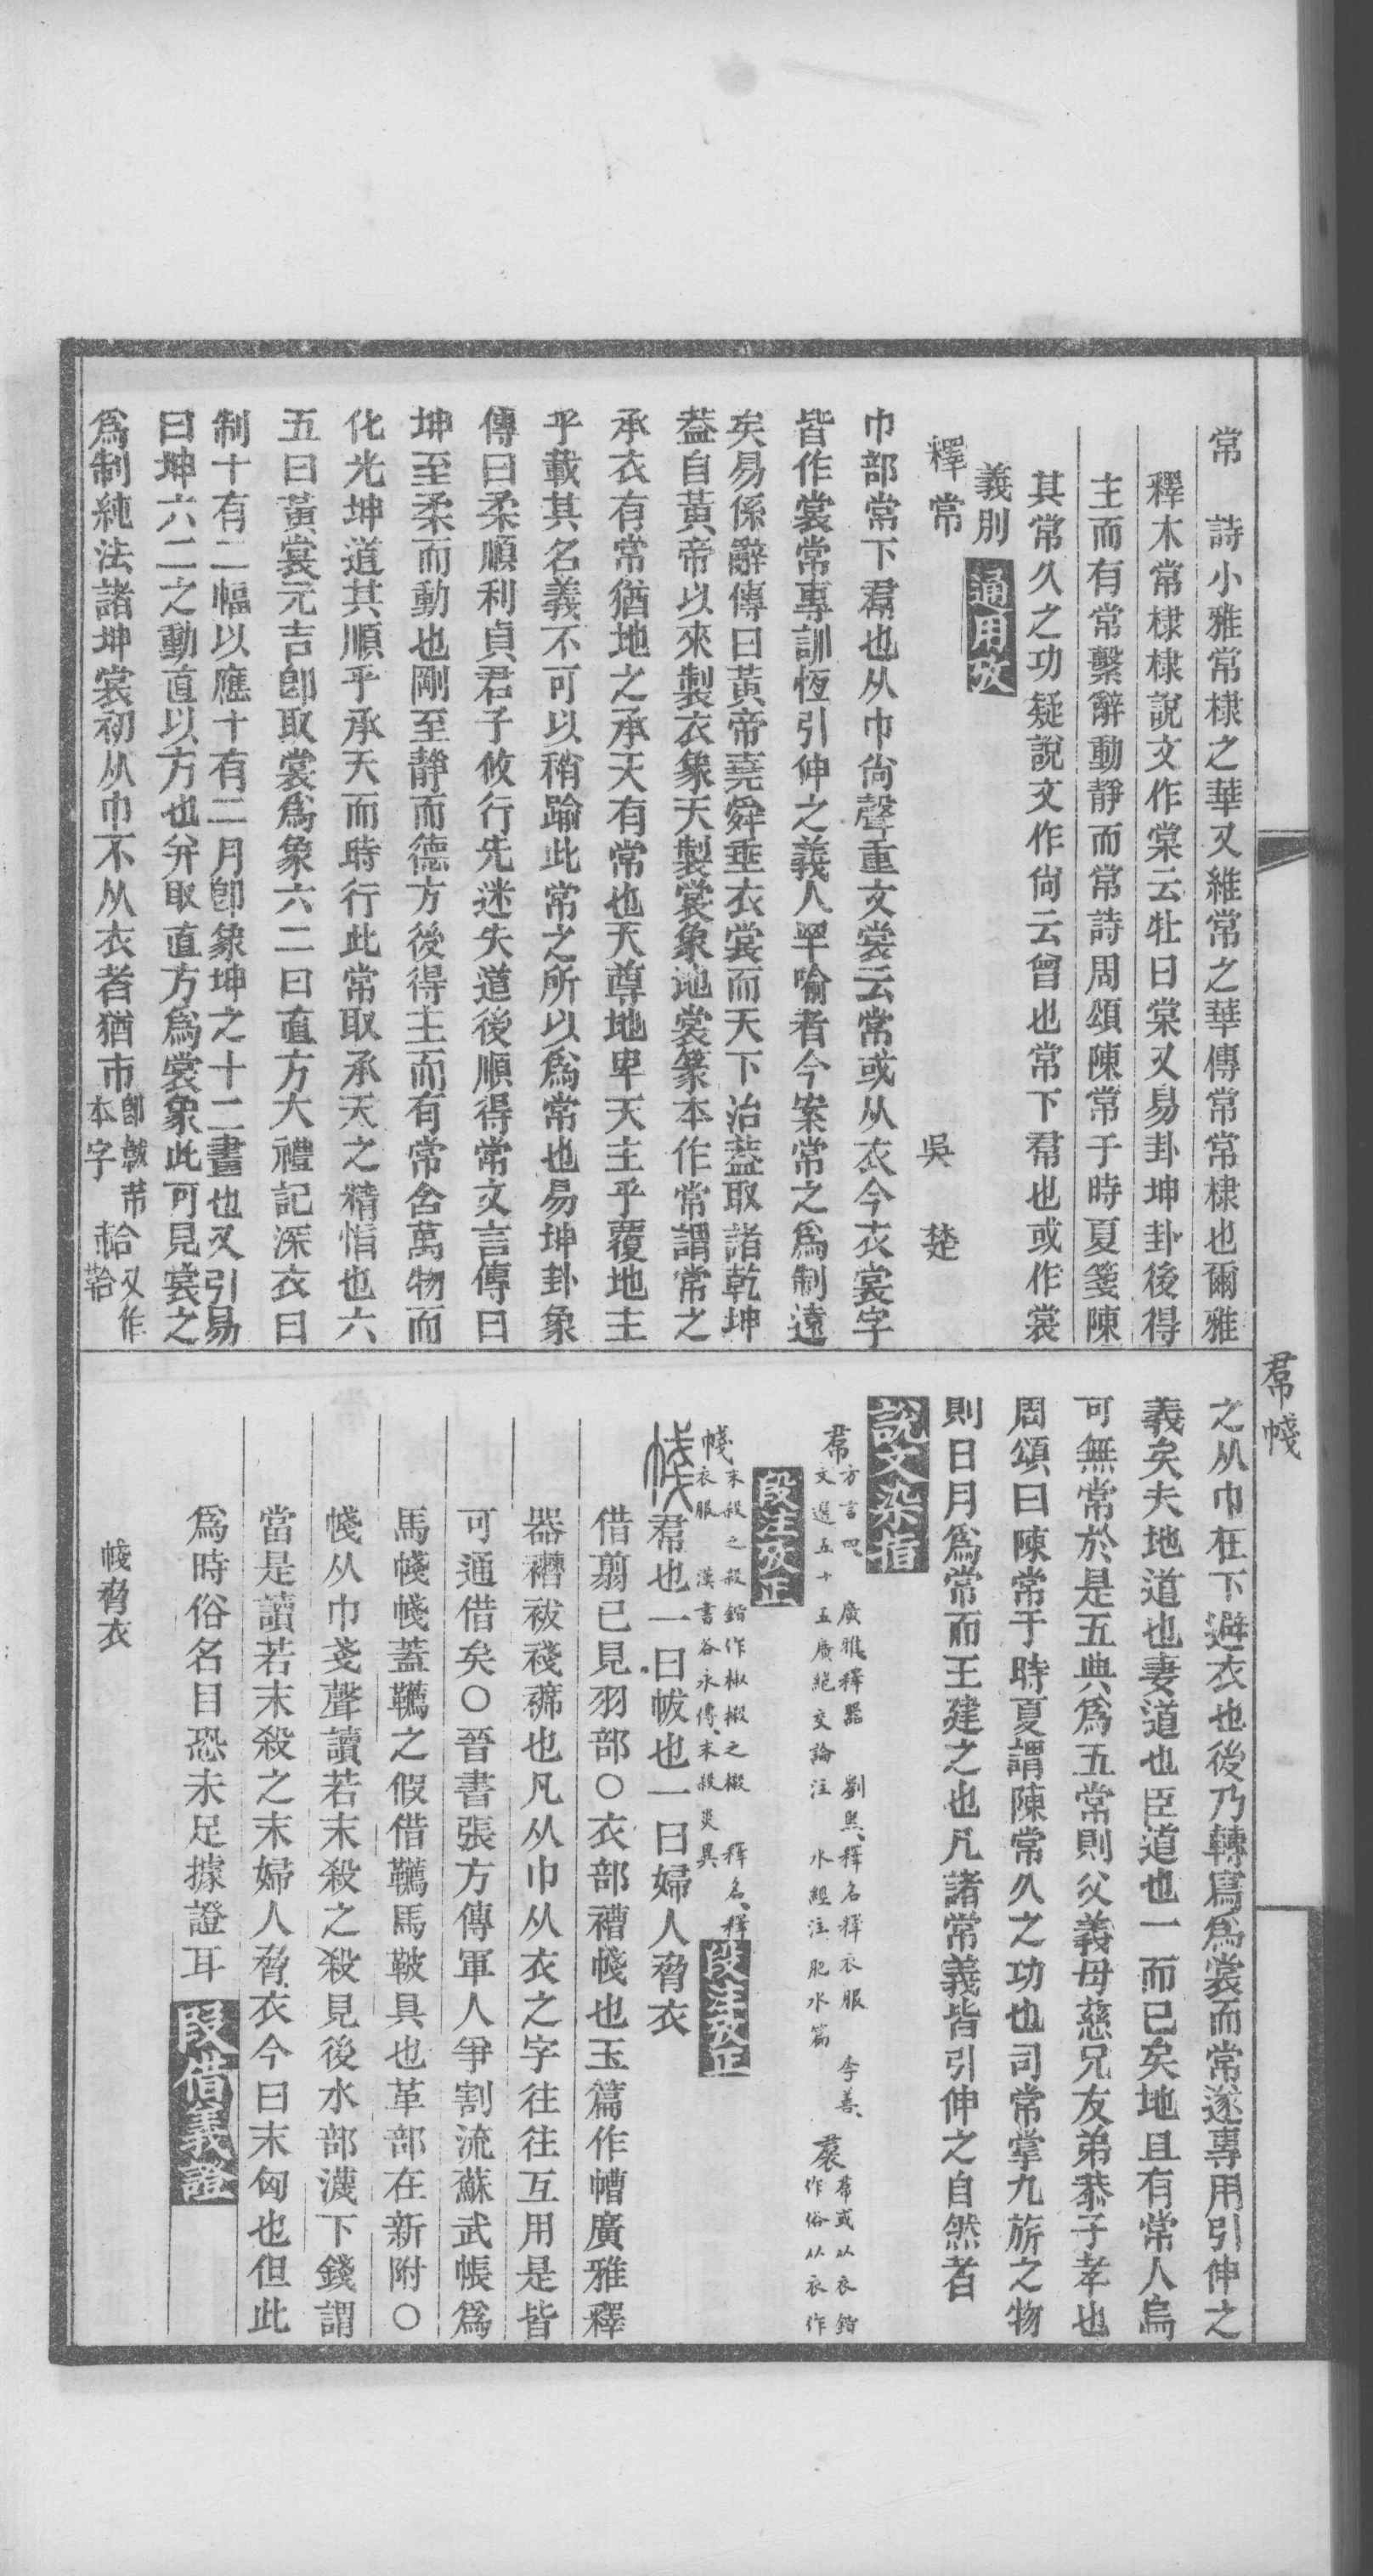 常　詩小雅常棣之華又維常之華傳常常棣也爾雅
釋木常棣棣說文作棠云牡曰棠又易卦坤卦後得
主而有常繫辭動靜而常詩周頌陳常于時夏箋陳
其常久之功疑說文作尙云曾也常下帬也或作裳
義別　通用攷
釋常　吳楚
巾部常下帬也从巾尙聲重文裳云常或从衣今衣裳字
皆作裳常專訓恆引伸之義人罕喻者今案常之爲制遠
矣易係辭傳曰黃帝堯舜垂衣裳而天下治葢取諸乾坤
葢自黃帝以來製衣象天製裳象地裳篆本作常謂常之
承衣有常猶地之承天有常也天尊地卑天主乎覆地主
乎載其名義不可以稍踰此常之所以爲常也易坤卦象
傳曰柔順利貞君子攸行先迷失道後順得常文言傳曰
坤至柔而動也剛至靜而德方後得主而有常含萬物而
化光坤道其順乎承天而時行此常取承天之精恉也六
五曰黃裳元吉卽取裳爲象六二曰直方大禮記深衣曰
制十有二幅以應十有二月卽象坤之十二畫也又引易
曰坤六二之動直以方也并取直方爲裳象此可見裳之
爲制純法諸坤裳初从巾不从衣者猶巿卽韍芾本字 帢又作韐
帬帴
之从巾在下避衣也後乃轉寫爲裳而常遂專用引伸之
義矣夫地道也妻道也臣道也一而已矣地且有常人烏
可無常於是五典爲五常則父義母慈兄友弟恭子孝也
周頌曰陳常于時夏謂陳常久之功也司常掌九旂之物
則日月爲常而王建之也凡諸常義皆引伸之自然者
說文染指
帬 方言四、廣雅、釋器　劉熙、釋名釋衣服　李善、
文選五十五廣絕交論注　水經注、肥水篇
裠 帬或从衣鍇
作俗从衣作
段注攷正
帴 末殺之殺鍇作椒樧之樧　釋名、釋
衣服　漢書谷永傳、末殺災異
段注攷正
帴 帬也一曰帗也一曰婦人脅衣
借翦已見羽部〇衣部褿帴也玉篇作㡟廣雅釋
器褿袚䙁㡛也凡从巾从衣之字往往互用是皆
可通借矣〇晉書張方傳軍人爭割流蘇武帳爲
馬帴帴蓋韉之假借韉馬鞁具也革部在新附〇
帴从巾戔聲讀若末殺之殺見後水部濊下錢謂
當是讀若末殺之末婦人脅衣今曰末匈也但此
爲時俗名目恐未足據證耳　段借義證
帴脅衣